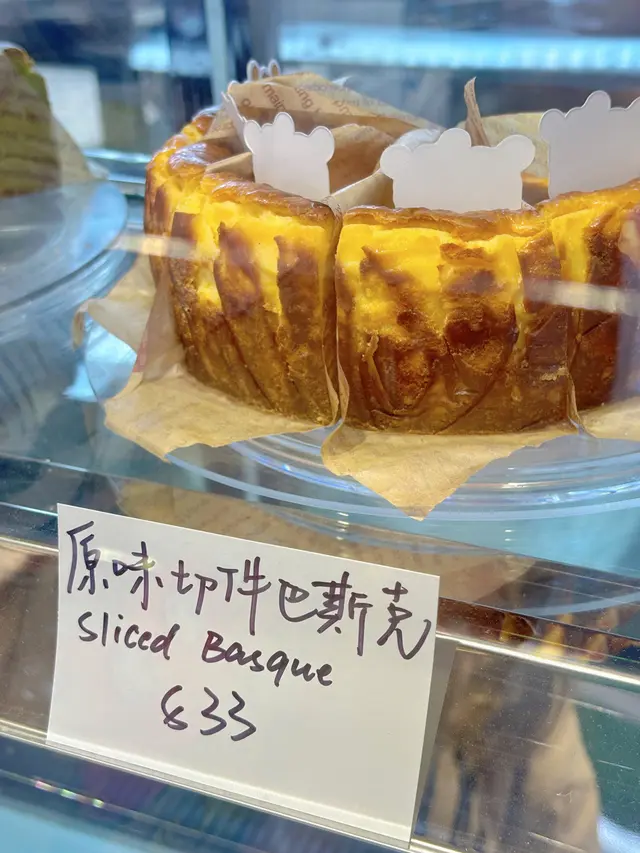 原味切件巴斯克
Sliced Basque
$33